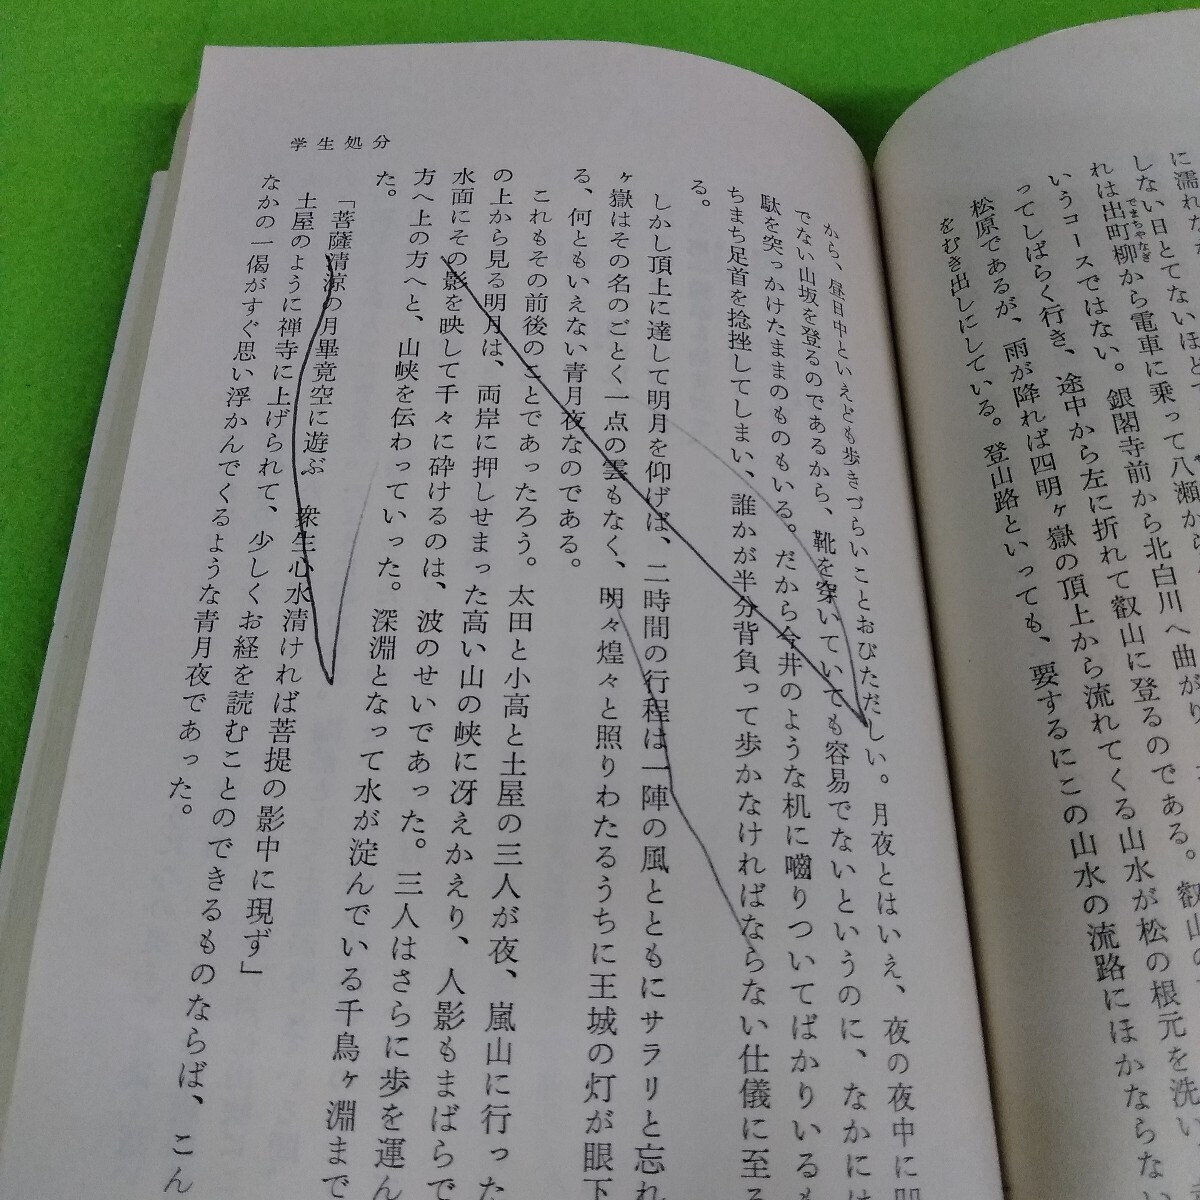 に濡れな
しない日とてないほど
れは出町柳から電車に乗って八瀬か
でまちやなぎ
いうコースではない。銀閣寺前から北白川へ曲がり
ってしばらく行き、途中から左に折れて叡山に登るのである。叡山の
松原であるが、雨が降れば四明ヶ嶽の頂上から流れてくる山水が松の根元を洗い
をむき出しにしている。登山路といっても、要するにこの山水の流路にほかならな
学生処分
から、昼日中といえども歩きづらいことおびただしい。月夜とはいえ、夜の夜中に
でない山坂を登るのであるから、靴を穿いていても容易でないというのに、なかには
駄を突っかけたままのものもいる。だから今井のような机に嚙りついてばかりいるも
ちまち足首を捻挫してしまい、誰かが半分背負って歩かなければならない仕儀に至
る。
しかし頂上に達して明月を仰げば、二時間の行程は一陣の風とともにサラリと忘れ
ヶ嶽はその名のごとく一点の雲もなく、明々煌々と照りわたるうちに王城の灯が眼下
る、何ともいえない青月夜なのである。
これもその前後のことであったろう。太田と小高と土屋の三人が夜、嵐山に行った
の上から見る明月は、両岸に押しせまった高い山の峡に冴えかえり、人影もまばらで
水面にその影を映して千々に砕けるのは、波のせいであった。三人はさらに歩を運ん
方へ上の方へと、山峡を伝わっていった。深淵となって水が淀んでいる千鳥ヶ淵まで
た。
「菩薩清涼の月畢竟空に遊ぶ　衆生心水清ければ菩提の影中に現ず」
土屋のように禅寺に上げられて、少しくお経を読むことのできるものならば、こん
なかの一偈がすぐ思い浮かんでくるような青月夜であった。